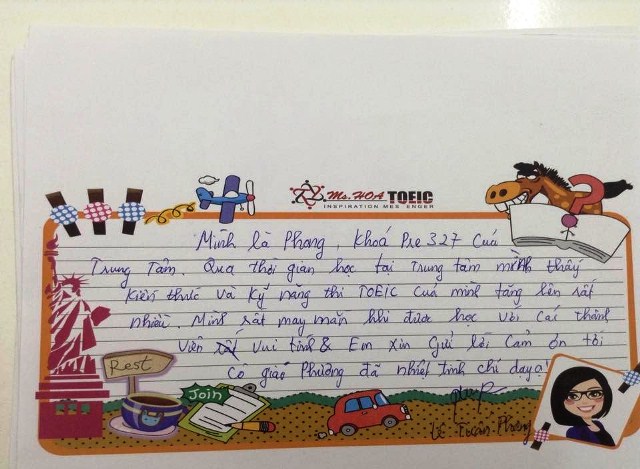 Ms. HOA TOEIC
INSPIRATION MESSENGER
Mình là Phong, Khoá Pre 327 Của
Trung Tâm. Qua thời gian học tại Trung tâm mình thấy
kiến thức và kỹ năng thi TOEIC của mình tăng lên rất
nhiều. Mình rất may mắn khi được học với các thành
viên vui tính & Em xin gửi lời cảm ơn tới
Cô giáo Phương đã nhiệt tình chỉ dạy ạ!
Rest
Join
Lê Tuấn Phong